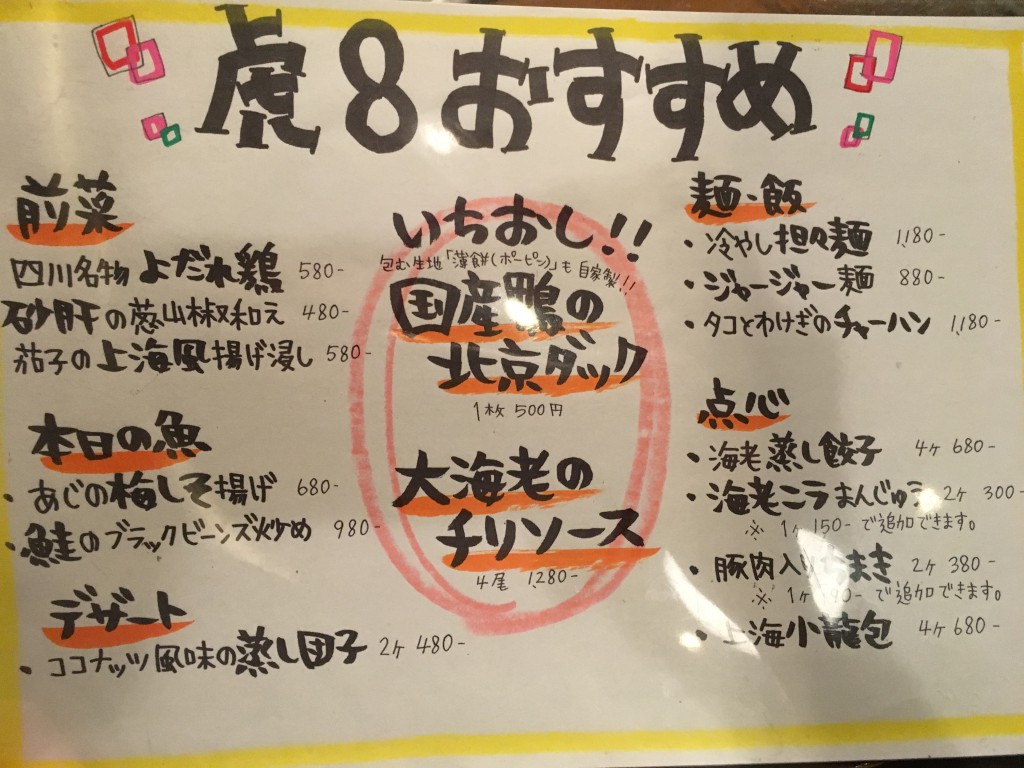 虎8おすすめ
前菜
四川名物 よだれ鶏 580-
砂肝の葱山椒和え 480-
茄子の上海風揚げ浸し 580-
本日の魚
・あじの梅しそ揚げ 680-
・鮭のブラックビーンズ炒め 980-
デザート
・ココナッツ風味の蒸し団子 2ヶ 480-
いちおし!!
包む生地「薄餅(ポーピン)」も自家製!!
国産鴨の
北京ダック
1枚 500円
大海老の
チリソース
4尾 1280-
麺・飯
・冷やし担々麺 1,180-
・ジャージャー麺 880-
・タコとわけぎのチャーハン 1,180-
点心
・海老蒸し餃子 4ヶ 680-
・海老ニラまんじゅう 2ヶ 300-
※ 1ヶ 150- で追加できます。
・豚肉入りちまき 2ヶ 380-
※ 1ヶ 190- で追加できます。
・上海小籠包 4ヶ 680-